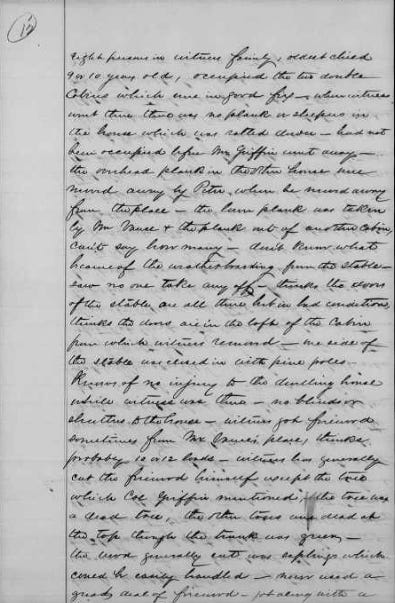 Eight persons in witness family, oldest child
9 or 10 years old, occupied the two double
Cabins which were in good fix — when witness
went there there was no plank or sleepers in
the house which was rotted down — had not
been occupied before Mr Griffin went away —
the overhead plank in the other house were
moved away by Peter when he moved away
from the place — the loose plank was taken
by Mr Vance & the plank out of another Cabin,
can't say how many — don't know what
became of the weatherboarding from the stable —
saw no one take any off — thinks the doors
of the stable are all there but in bad condition,
thinks the doors are in the loft of the Cabin
from which witness removed — one side of
the stable was closed in with pine poles —
Knows of no injury to the dwelling house
while witness was there — no blinds or
shutters to the house — witness got firewood
sometimes from Mr place, thinks
probably 10 or 12 loads — witness has generally
cut the firewood himself except the tree
which Col Griffin mentioned, the tree was
a dead tree, the other trees was dead at
the top though the trunk was green —
the wood generally cut was saplings which
could be easily handled — never used a
great deal of firewood — along with a